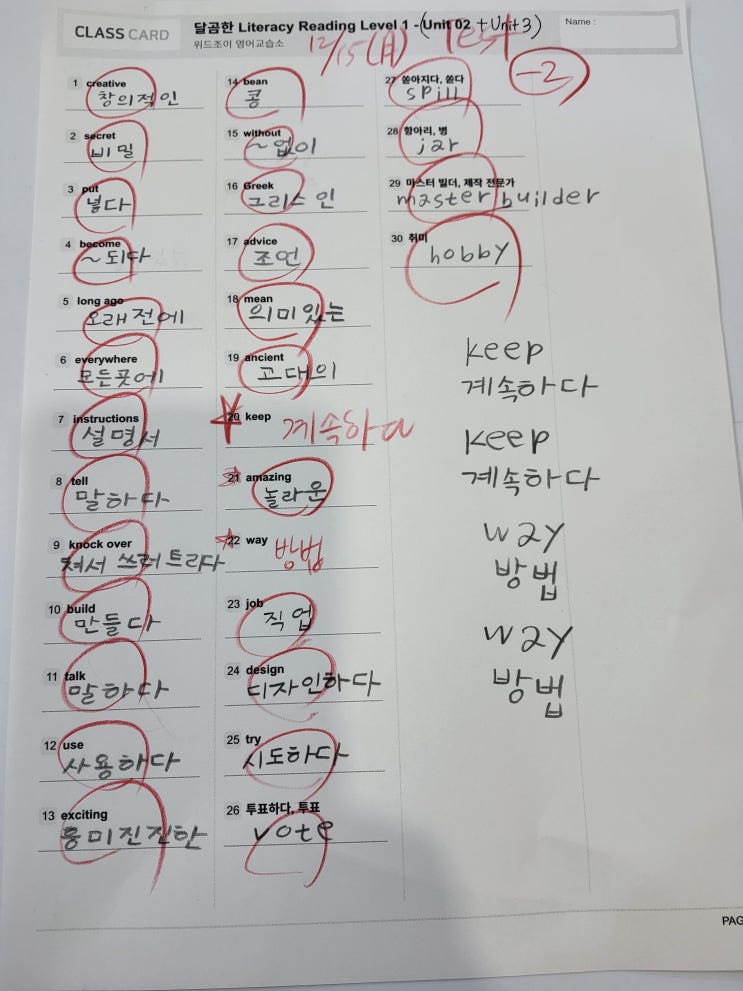 CLASS CARD
달곰한 Literacy Reading Level 1 - (Unit 02 + Unit 3) Test
위드조이 영어교습소
Name :
12/15(月)
-2
1 creative
창의적인
2 secret
비밀
3 put
넣다
4 become
~되다
5 long ago
오래전에
6 everywhere
모든곳에
7 instructions
설명서
8 tell
말하다
9 knock over
쳐서 쓰러트리다
10 build
만들다
11 talk
말하다
12 use
사용하다
13 exciting
흥미진진한
14 bean
콩
15 without
~없이
16 Greek
그리스인
17 advice
조언
18 mean
의미있는
19 ancient
고대의
20 keep
계속하다
21 amazing
놀라운
22 way
방법
23 job
직업
24 design
디자인하다
25 try
시도하다
26 투표하다, 투표
vote
27 쏟아지다, 쏟다
spill
28 항아리, 병
jar
29 마스터 빌더, 제작 전문가
master builder
30 취미
hobby
keep
계속하다
keep
계속하다
way
방법
way
방법
PAG